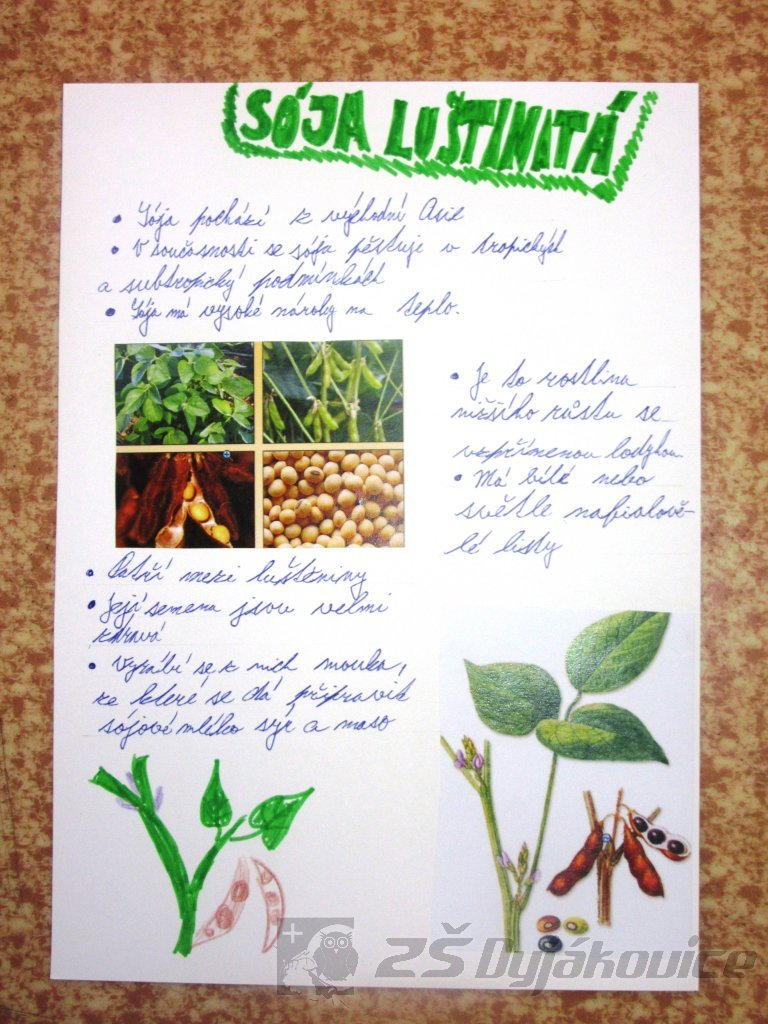 SÓJA LUŠTINATÁ
• Sója pochází z východní Asie
• V současnosti se sója pěstuje v tropických
a subtropický podmínkách
• Sója má vysoké nároky na teplo.
• Je to rostlina
nižšího růstu se
vzpřímenou lodyhou
• Má bílé nebo
světle nafialově-
lé listy
• Patří mezi luštěniny
• Její semena jsou velmi
zdravá
• Vyrábí se z nich mouka,
ze které se dá připravit
sójové mléko sýr a maso
ZŠ Dyjákovice